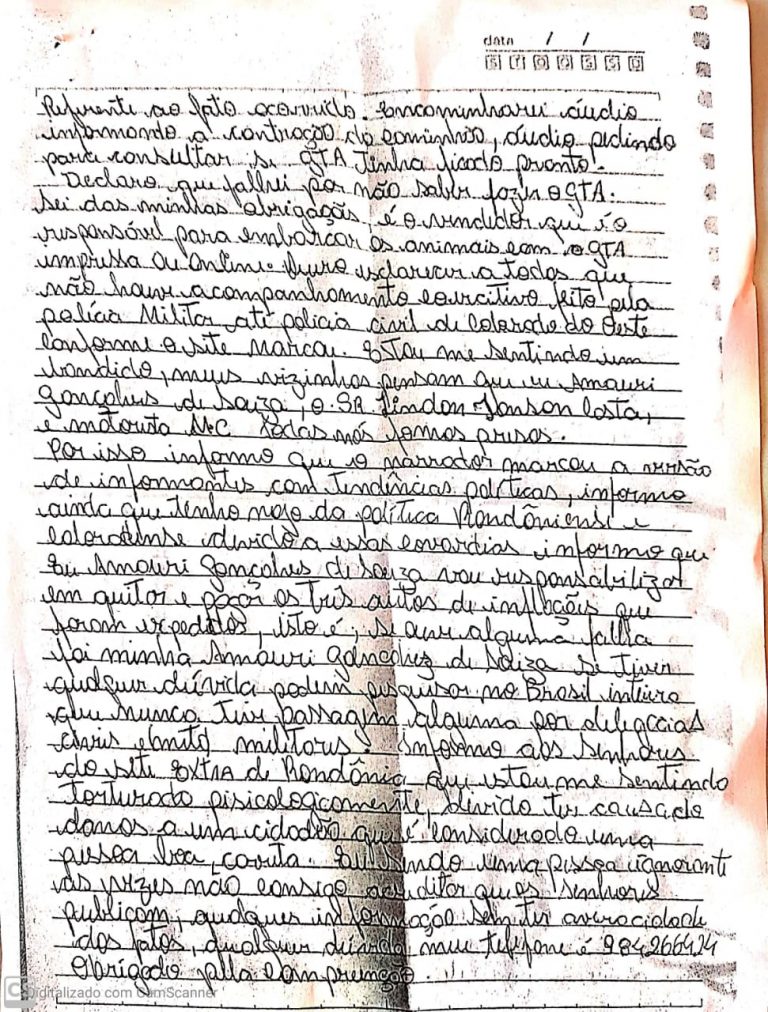 data / /
S T Q Q S S D
Referente ao fato ocorrido. Encaminharei áudio
informando a contração do caminhão, áudio pedindo
para consultar se GTA tenha ficado pronto.
Declaro que falhei por não saber fazer o GTA.
Sei das minhas obrigações, é o vendedor que é o
responsável para embarcar os animais com o GTA
impressa ou online. Quero esclarecer a todos que
não houve acompanhamento coercitivo feito pela
polícia Militar até polícia civil de Colorado do Oeste
conforme o site narrou. Estou me sentindo um
bandido, meus vizinhos pensam que eu Amauri
Gonçalves de Souza, o SR. Lindon Jonson Costa,
e motorista M.C todos nós fomos presos.
Por isso informo que o narrador narrou a versão
de informantes com tendências políticas, informo
ainda que tenho nojo da política Rondôniense e
coloradense devido a essas covardias informo que
Eu Amauri Gonçalves de Souza vou responsabilizar
em quitar e pagar os três autos de inflações que
foram expedidos, isto é, se ouve alguma falha
foi minha Amauri Gonçalvez de Souza se tiver
qualquer dúvida podem pesquisar no Brasil inteiro
que nunca tive passagem alguma por delegacias
civis e militares. Informo aos senhores
do site Extra de Rondônia que estou me sentindo
torturado pisicologicamente, devido ter causado
danos a um cidadão que é considerado uma
pessoa boa, correta. Eu sendo uma pessoa ignorante
as vezes não consigo acreditar que os senhores
publicam, qualquer informação sem ter averacidade
dos fatos, qualquer dúvida meu telefone é 984266424
Obrigado pela
CS Digitalizado com CamScanner